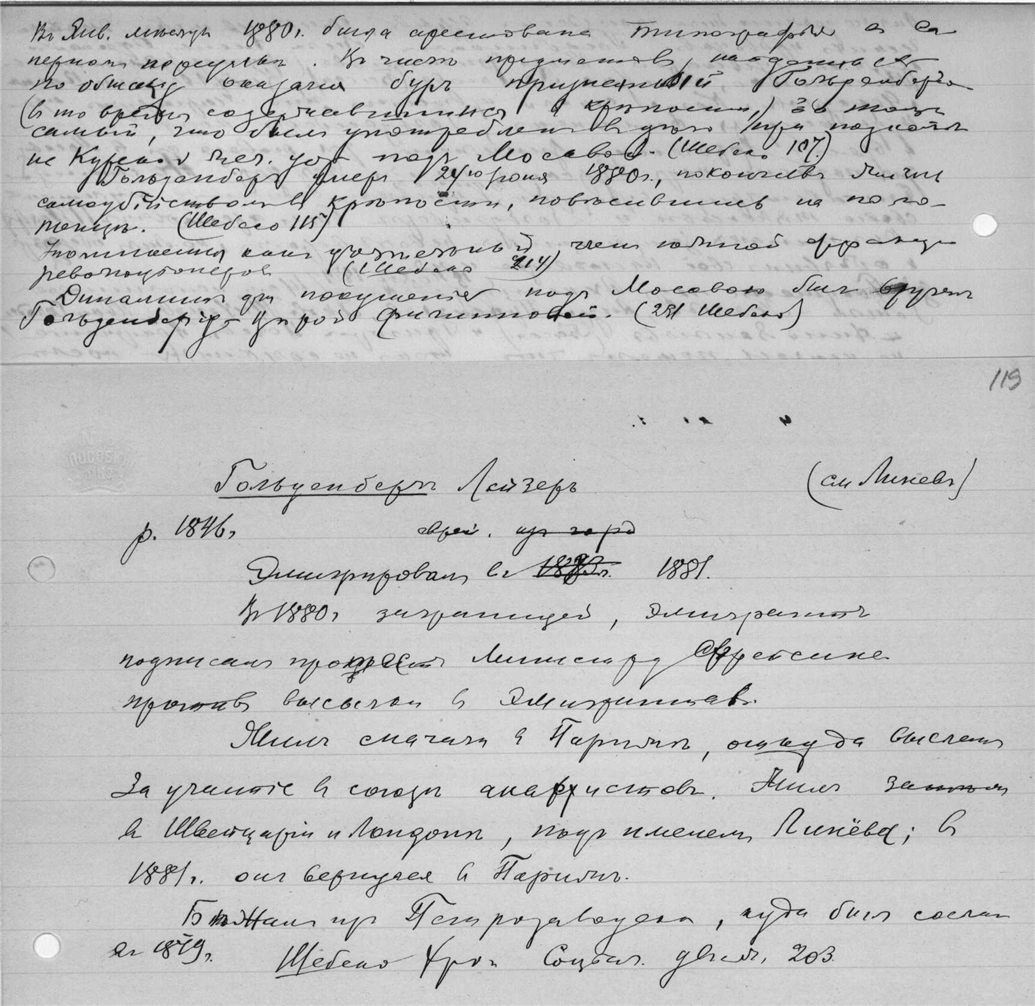 Въ Янв. месяце 1880 г. была арестована типографія в Са
перном переулкѣ. Въ числѣ предметовъ, найденныхъ
по обыску оказался буръ Гольденбергъ
(в то время содержавшимся в крѣпости,) за тотъ
самый, что былъ употребленъ в дѣло при подкопѣ
на Курской жел. дор. подъ Москвой. (Шебеко 107.)
Гольденбергъ умеръ іюня 1880 г., покончивъ жизнь
самоубійствомъ в крѣпости, повѣсившись на поло
тенцѣ. (Шебеко 115)
Упоминается какъ членъ южной фракціи
революціонеровъ (Шебеко 214)
Динамитъ для покушенія подъ Москвою былъ врученъ
Гольденбергу (281 Шебеко)
119
Гольденбергъ Лейзеръ (см Линевъ)
р. 1846 г. еврей.
Эмигрировалъ въ 1881.
Въ 1880 г заграницей, эмигрантъ
подписалъ протестъ Министру Фрейсине
противъ высылки
Жилъ сначала в Парижѣ, откуда высланъ
За участіе в союзѣ анархистовъ. Жилъ затѣмъ
в Швейцаріи и Лондонѣ, подъ именемъ Линёва; в
1881 г. онъ вернулся в Парижъ.
Бѣжалъ изъ Петрозаводска, куда былъ сосланъ
въ 1879 г. Шебеко Хрон Соціал. движ. 203.